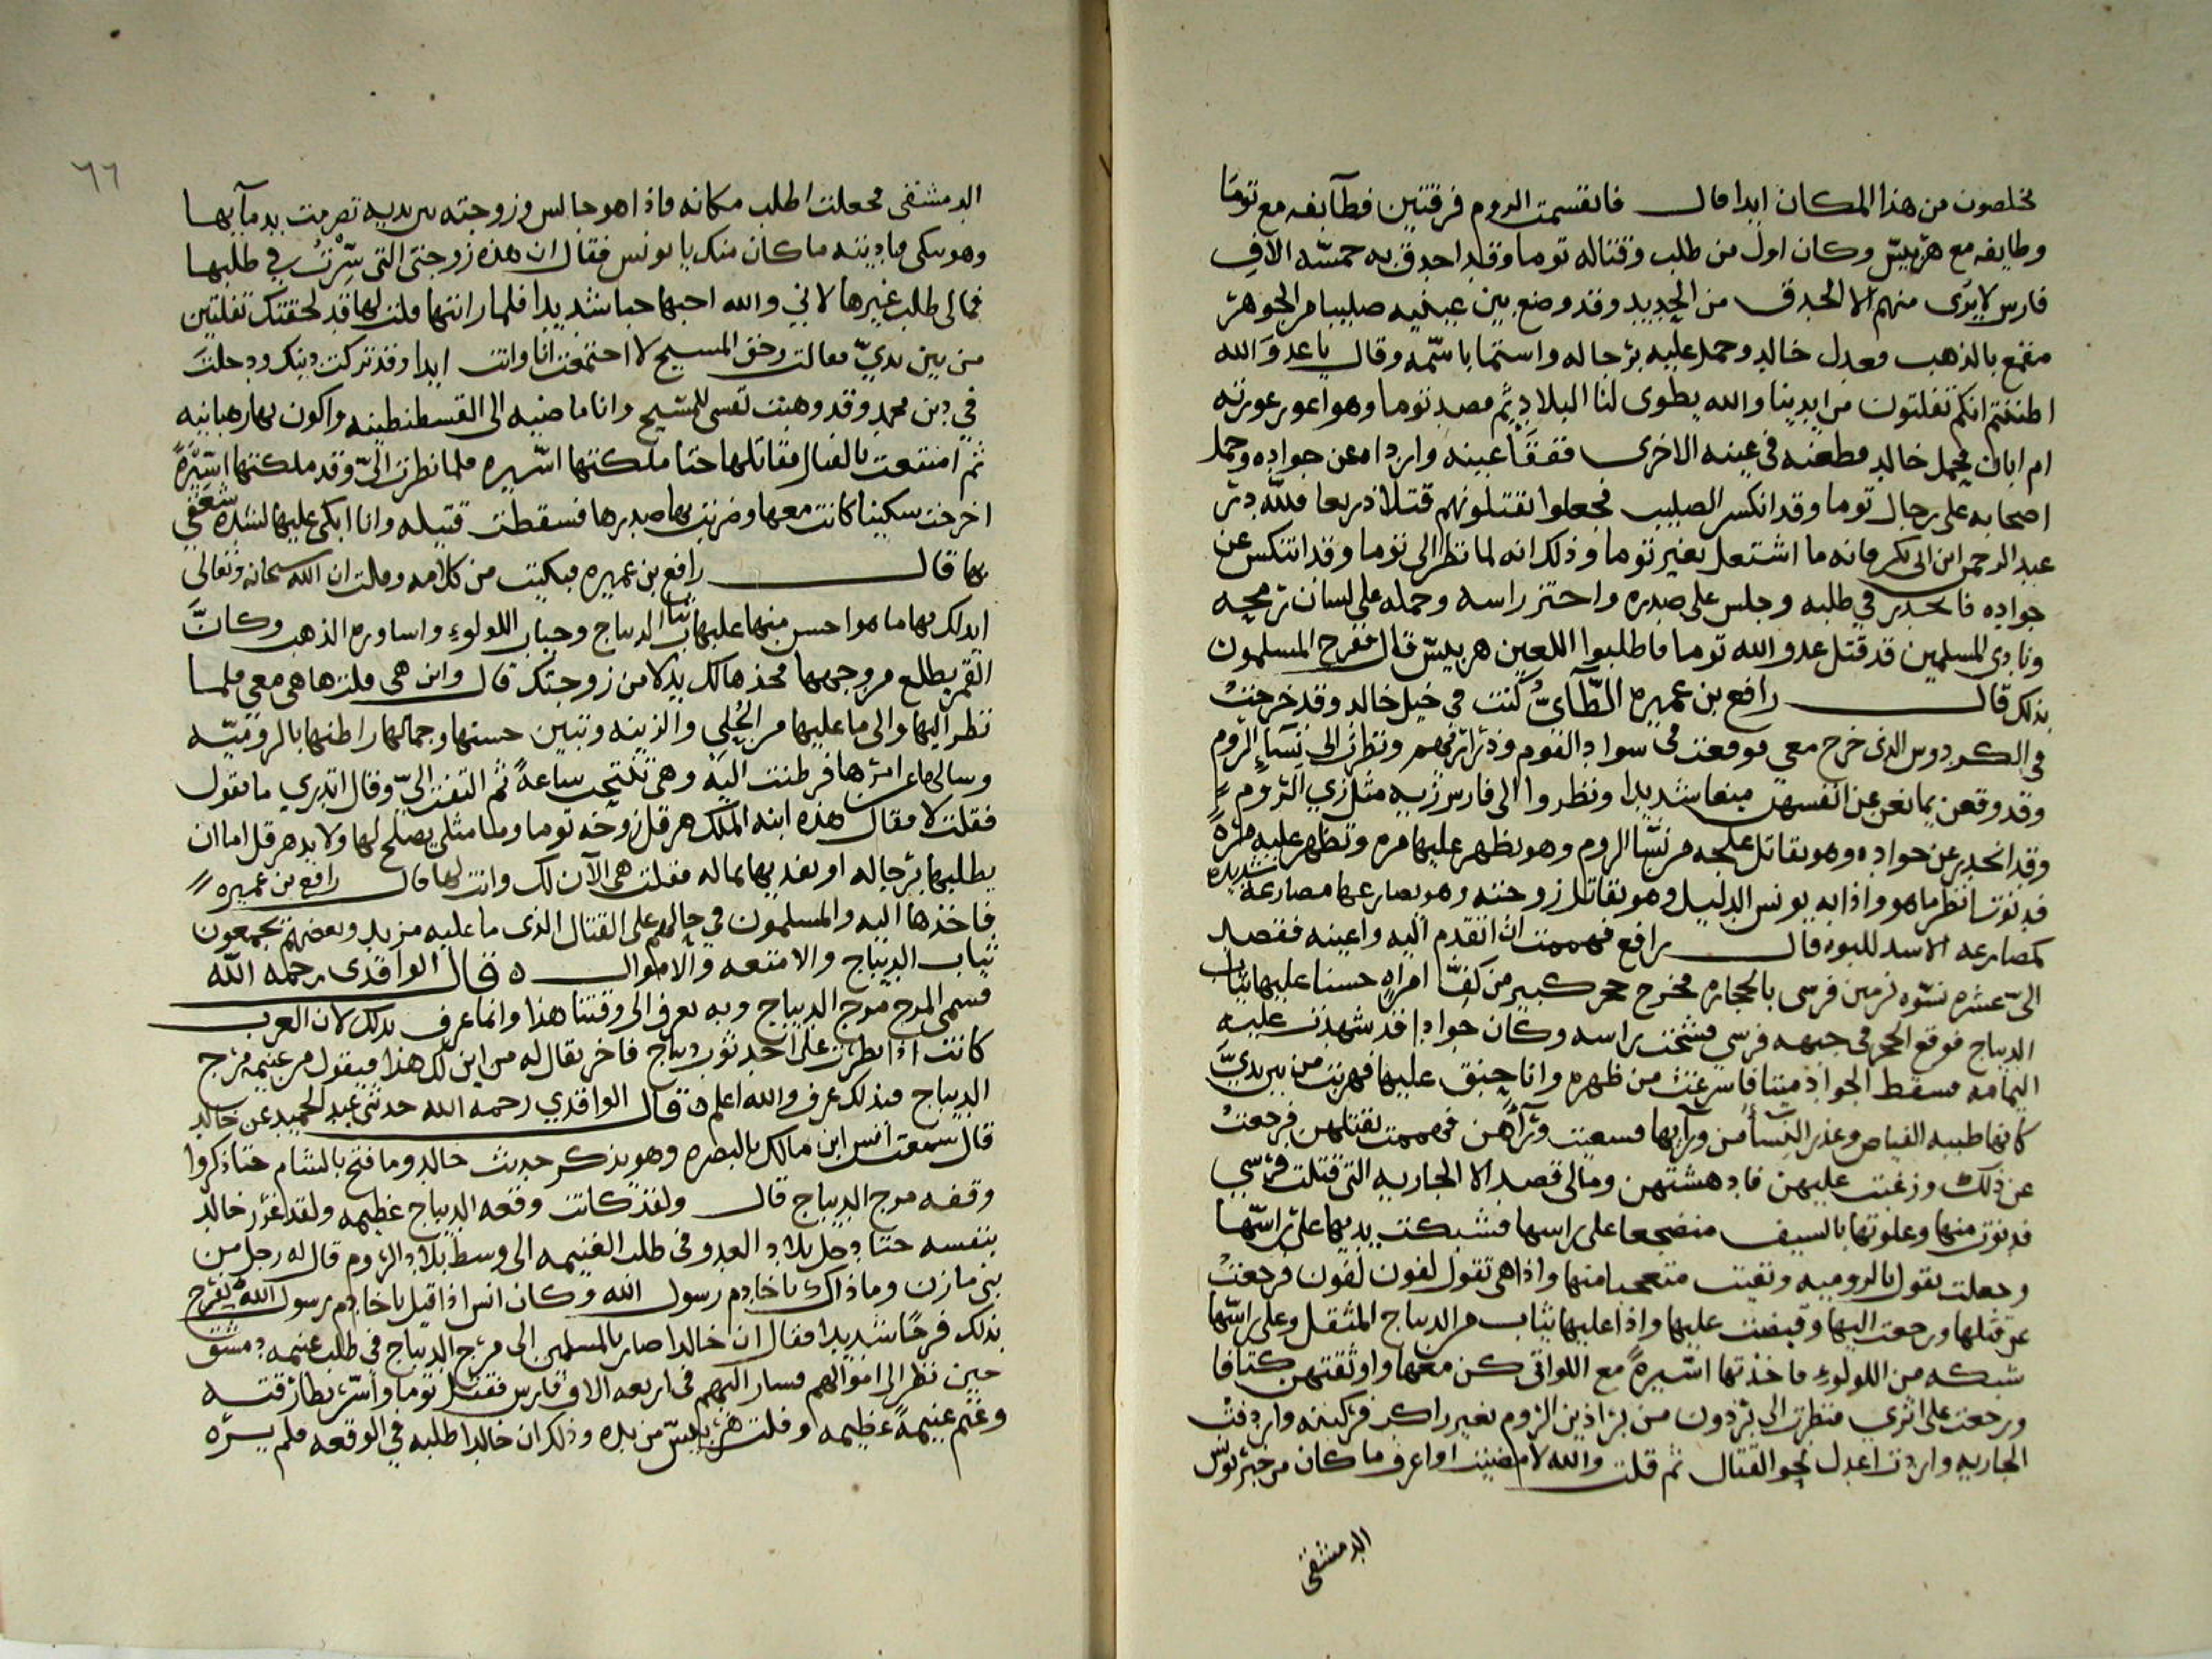 تخلصون من هذا المكان ابدا قال فانقسمت الروم فرقتين فطآيفه مع توما
وطايفه مع هربيس وكان اول من طلب وقتاله توما وقد احدق به خمسه الاف
فارس لا يرى منهم الا الحدق من الحديد وقد وضع بين عينيه صليبا من الجوهر
مقمع بالذهب فعدل خالد وحمل عليه برجاله واستما باسمه وقال يا عدو الله
اظننتم انكم تفلتون من ايدينا والله يطوى لنا البلاد ثم قصد توما وهو اعور عورته
ام ابان فحمل خالد فطعنه في عينه الاخرى ففقأ عينه وارداه عن جواده وحمل
اصحابه على رجال توما وقد انكسر الصليب فجعلوا تقتلونهم قتلا ذريعا فلله در
عبد الرحمن ابن ابى بكر فانه ما اشتعل بغير توما وذلك انه لما نظر الى توما وقد انتكس عن
جواده فانحدر في طلبه وجلس على صدره واحتز راسه وحمله على لسان رمحه
ونادى المسلمين قد قتل عدو الله توما فاطلبوا اللعين هربيس قال ففرح المسلمون
بذلك قال رافع بن عميره الطآئ كنت في خيل خالد وقد خرجت
في الكردوس الذى خرج معي فوقعت في سواد القوم ونظرت الى نسآء الروم
وقد وقعن يمانعن عن انفسهن منعا شديدا ونظروا الى فارس زيه مثل زي الروم
وقد انحدر عن جواده وهو يقاتل علجه من نسا الروم وهو يظهر عليها مره وتظهر عليه مرة
فدنوت انظر ما هو واذا به يونس الدليل وهو تقاتل زوجته وهو يصارعها مصارعة شديده
كمصارعه الاسد للبوه قال رافع فهممت ان اتقدم اليه واعينه فقصد
الى عشره نسوه ترمين فرسى بالحجاره فخرج حجر كبير من كف امراه حسنا عليها ثياب
الديباج فوقع الحجر في جبهه فرسي فشخت براسه وكان جوادا قد شهدت عليه
اليمامه فسقط الجواد ميتا فاسرعت من ظهره وانا حنق عليها فهربت من بين يدي
كانها ظبيه القناص وغدر النسآ من ورآيها فسعيت ورآهن فهممت بقتلهن فرجعت
عن ذلك وزعقت عليهن فادهشتهن ومالى قصد الا الجاريه التى قتلت فرسي
فدنوت منها وعلوتها بالسيف منضجعا على راسها فشبكت يديها على راسها
وجعلت تقول بالروميه وبقيت متعجبا منها واذا هى تقول لفون لفون فرجعت
عن قتلها ورجعت اليها وقبضت عليها واذا عليها ثياب من الديباج المثقل وعلى راسها
شبكه من اللولوء فاخذتها اسيرة مع اللواتى كن معها واوثقتهن كتافا
ورجعت على اثري فنظرت الى برذون من براذين الروم بغير راكب فركبته واردفت
الجاريه واردت اعدل نحو القتال ثم قلت والله لا مضيت او اعرف ما كان من خبر يونس
الدمشقى
٦٦
الدمشقى فجعلت اطلب مكانه فاذا هو جالس وزوجته بين يديه تضرجت بدمآيها
وهو يبكى فناديته ما كان منك يا يونس فقال ان هذه زوجتى التى سرت في طلبها
فمالى طلب غيرها لاني والله احبها حبا شديدا فلما رايتها قلت لها قد لحقتك تفلتين
من بين يدي فقالت وحق المسيح لا اجتمعت انا وانت ابدا وقد تركت دينك ودخلت
في دين محمد وقد وهبت نفسى للمسيح وانا ماضيه الى القسطنطينه واكون بها رهبانيه
ثم امتنعت بالقتال فقاتلها حتا ملكتها اسيره فلما نظرت الى وقد ملكتها اسيرة
اخرجت سكينا كانت معها وضربت بها صدرها فسقطت قتيله وانا ابكى عليها لشده شغفي
بها قال رافع بن عميره فبكيت من كلامه وقلت ان الله سبحانه وتعالى
ابدلك بها ما هو احسن منها عليها ثياب الديباج وحباب اللولوء واساوره الذهب وكانت
القمر يطلع من وجهها فخذها لك بدلا من زوجتك قال واين هى قلت ها هى معى فلما
نظر اليها والى ما عليها من الحُلى والزينه وتبين حسنها وجمالها راطنها بالروميه
وسالها عن امرها فرطنت اليه وهى تنتحب ساعة ثم التفت الى وقال اتدري ما تقول
فقلت لا فقال هذه ابنه الملك هرقل زوجه توما وما مثلى يصلح لها ولا بد هرقل اما ان
يطلبها برجاله او يفديها بماله فقلت هى الآن لك وانت لها قال رافع بن عميره
فاخذها اليه والمسلمون في حالهم على القتال الذى ما عليه مزيد وبعضهم يجمعون
ثياب الديباج والامتعه والاموال ه قال الواقدى رحمه الله
فسمى المرج مرج الديباج وبه يعرف الى وقتنا هذا وانما عرف بذلك لان العرب
كانت اذا نظرت على احد ثوب ديباج فاخر يقال له من اين لك هذا فيقول من غنيمه مرج
الديباج فبذلك عرف والله اعلم ه قال الواقدي رحمه الله حدثنى عبد الحميد عن خالد
قال سمعت انس ابن مالك بالبصره وهو يذكر حديث خالد وما فتح بالشام حتا ذكروا
وقعه مرج الديباج قال ولقد كانت وقعه الديباج عظيمه ولقد غرر خالد
بنفسه حتا دخل بلاد العدو في طلب الغنيمه الى وسط بلاد الروم قال له رجل من
بنى مازن وما ذاك يا خادم رسول الله وكان انس اذا قيل يا خادم رسول الله يفرح
بذلك فرحًا شديدا فقال ان خالدا صار بالمسلمين الى مرج الديباج في طلب غنيمه دمشق
حين نظر الى اموالهم فسار اليهم في اربعه الاف فارس فقتل توما واسر بطارقته
وغنم غنيمة عظيمه وفلت هربيس من يده وذلك ان خالدا طلبه في الوقعه فلم يره